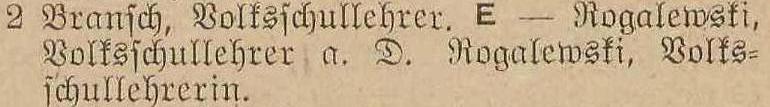 2 Bransch, Volksschullehrer. E — Rogalewski,
Volksschullehrer a. D. Rogalewski, Volks=
schullehrerin.